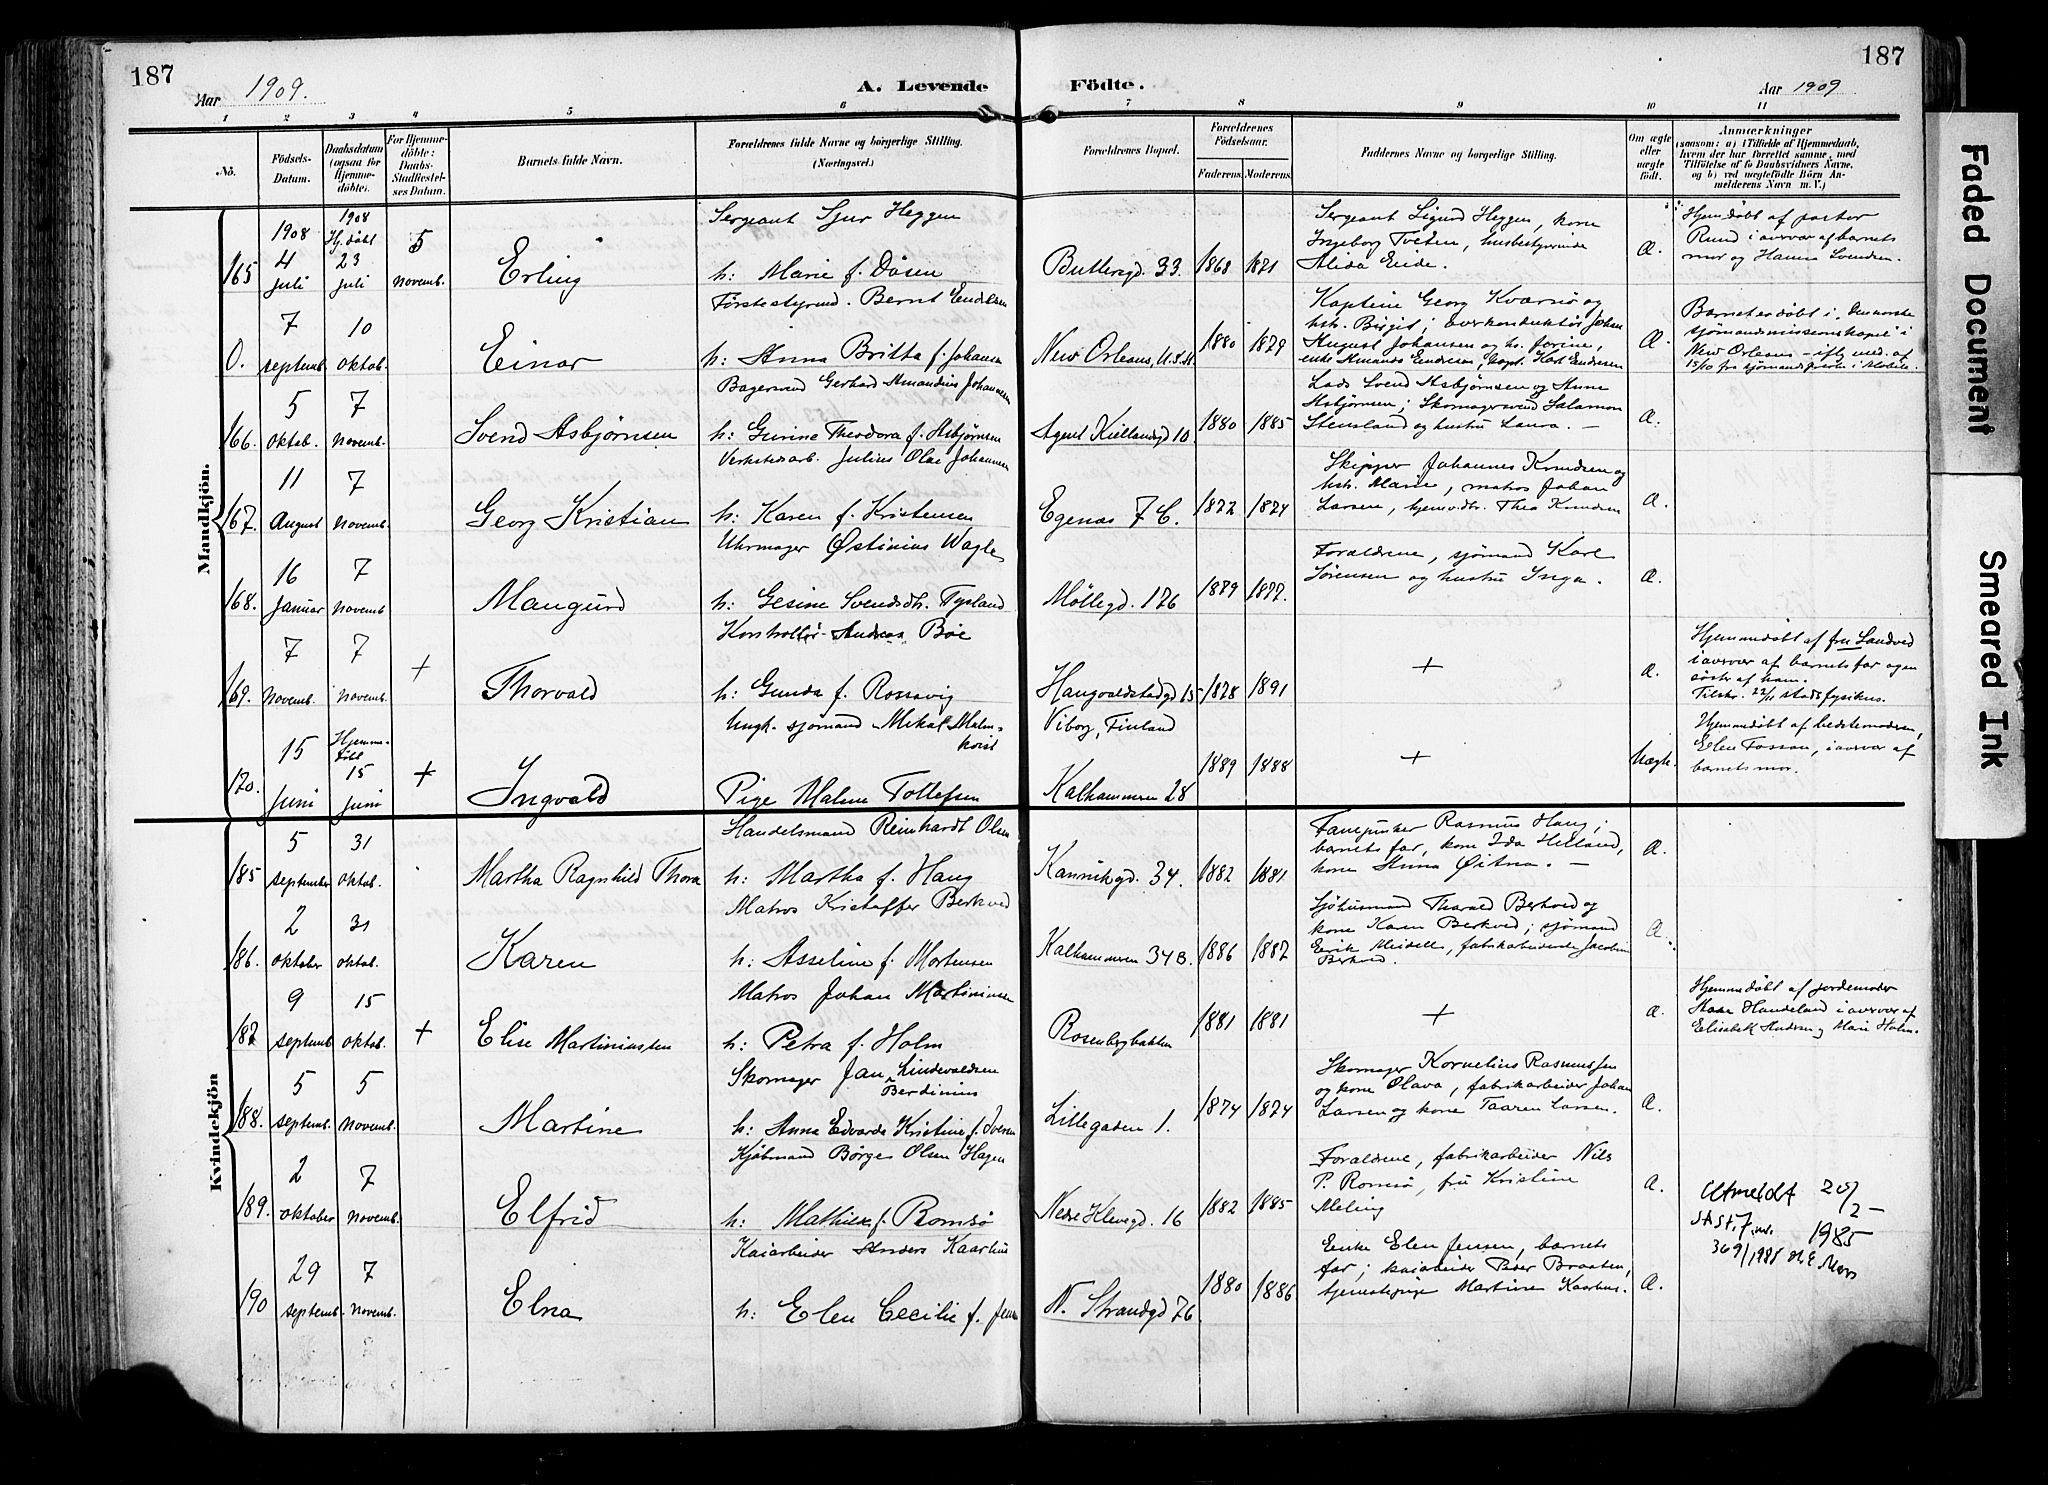 187
Aar 1909.
A. Levende
Födte.
187
Aar 1909
1 2 3 4 5 6 7 8 9 10 11
No.
Födsels-
Datum.
Daabsdatum
(ogsaa for
Hjemme-
döbte).
For Hjemme-
döbte:
Daabs-
Stadfæstel-
ses Datum.
Barnets fulde Navn.
Forældrenes fulde Navne og borgerlige Stilling.
(Næringsvei.)
Forældrenes Bopæl.
Forældrenes
Födselsaar.
Faderens. Moderens.
Faddernes Navne og borgerlige Stilling.
Om ægte
eller
uægte
födt.
Anmærkninger
(saasom: a) i Tilfælde af Hjemmedaab,
hvem der har forrettet samme, med
Tilföielse af to Daabsvidners Navne,
og b) ved uægtefödte Börn An-
melderens Navn m. V.)
Mandkjön.
165
1908
4
juli
1908
Hj.døbt
23
juli
5
novemb.
Erling
Sergeant Sjur Heggen
h: Marie f. Døsen
1868
Sergeant Sigurd Heggen, kone
Ingeborg Tveten, husbestyrerinde
Alida Ende.
Æ.
Hjemdøbt af pastor
i overvær af barnets
mor og Hanna Svendsen.
0.
7
septemb.
10
oktob.
Einar
Bernt Endresen
h: Anna Britta f. Johansen
New Orleans, U.S.A.
1880 1879
Kaptein Georg Kvarnø og
hstr. Birgit; overkonduktør Johan
August Johansen og h. Jorine,
enke Amanda Endresen, kapt. Karl Endresen
Æ.
Barnet er døbt i Den norske
sjømandsmissions kapel i
New Orleans
166.
5
oktob.
7
novemb.
Svend Asbjørnsen
Bagersvend Gerhard Amandius Johannesen
h: Gurine Theodora f. Asbjørnsen
Agent Kiellandsgd 10
1880 1885
Lods Svend Asbjørnsen og Anne
Asbjørnsen; Skomagersvend Salamon
Stensland og hustru Laura. –
Æ.
167.
11
August
7
novemb.
Georg Kristian
Verkstedsarb. Julius Olai Johannesen
h: Karen f. Kristensen
Egenæs 7 C.
1872 1874
Skipper Johannes Knudsen og
hstr. Marie, matros Johan
Larsen, Thea Knudsen
Æ.
168.
16
Januar
7
novemb
Mangurd
Uhrmager Østinius Wagle
h: Gesine Svendsdtr. Tysland
Møllegd. 126
1879 1877.
Forældrene, sjømand Karl
Sørensen og hustru Inga.
Æ.
169.
7
novemb.
7
novemb.
+
Thorvald
Kontrollør Andreas Bøe
h: Gunda f. Rossavig
Haugvaldstadgd 15
1878 1891
+
Æ.
Hjemmedøbt af fru Sandved
i overvær af barnets far og en
søstr af ham.
Tilstr. 22/11 stadsfysikus.
170.
15
juni
Hjemme-
døbt
15
juni
+
Ingvald
Ungk. sjømand Mikal Malm-
kvist
Pige Malene Tollefsen
Viborg, Finland
Kalhammeren 28
1889 1888
+
Uægte.
Hjemmedøbt af bedstemoderen,
Elen Tossan, i overvær af
barnets mor.
Kvindekjön
185
5
september
31
oktob.
Martha Ragnhild Thora
Handelsmand Reinhardt Olsen
h: Martha f. Haug
Kannikgd. 34.
1882 1881
Fanejunker Rasmus Haug,
barnets far, kone Ida Helland,
kone Anna Øitna. –
Æ.
186.
2
oktober
31
oktob.
Karen
Matros Kristoffer Berkved
h: Asseline f. Mortensen
Kalhammeren 34 B.
1886 1887
Sjøhusmand Tharald Berkved og
kone Karen Berkved; sjømand
Eirik Meidell, fabrikarbeiderske Jacobine
Berkved.
Æ.
187
9
septemb
15
oktob.
+
Elise Martiniussen
Matros Johan Martiniussen
h: Petra f. Holm
Rosenbergbakken
1881 1881
+
Æ.
Hjemmedøbt af jordemoder
Handeland i overvær af
Elisabeth Andersen og Marie Holm.
188.
5
septemb.
5
novemb.
Martine
Skomager Jan Lindevaldsen
Berdinius
h: Anna Edvarda Kristine f. Iversen
Lillegaden 1.
1874 1874
Skomager Kornelius Rasmussen
og kone Olava, fabrikarbeider Johan
Larsen og kone Taaren Larsen.
Æ.
189.
2
oktober
7
novemb.
Elfrid
Kjøbmand Børge Olsen Hagen
h: Mathilde f. Romsø
Nedre Klevegd. 16
1882 1885
Forældrene, fabrikarbeider Nils
P. Romsø, fru Kristine
Meling
Æ.
Utmeldt 20/2 –
1985
369/1985
190
29
septemb.
7
novemb.
Elna
Kaiarbeider Anders Kaarhus
h: Elen Cecilie f. Jensen
N. Strandgd 76
1880 1886
Enke Elen Jensen, barnets
far; kaiarbeider Peder Braaten,
tjenestepige Martine Kaarhus.
Æ.
Faded Document
Smeared Ink